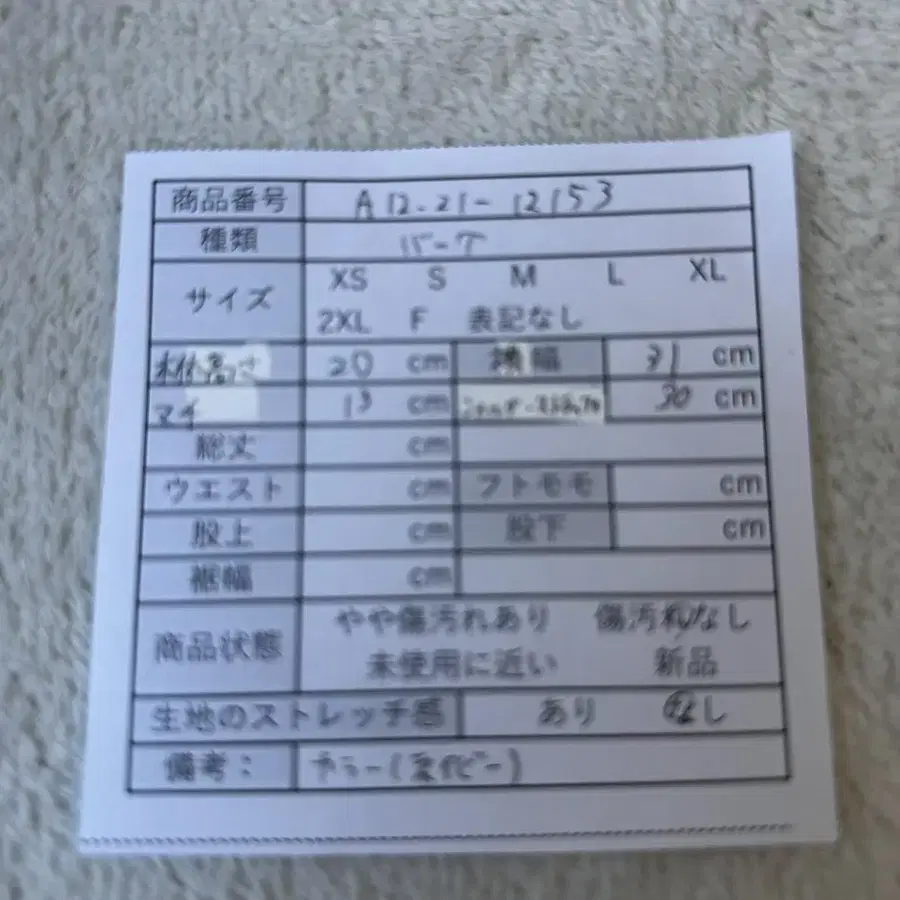 商品番号 A12.21-12153
種類
サイズ XS S M L XL
2XL F 表記なし
本体高さ 20 cm 横幅 31 cm
マチ 13 cm 30 cm
総丈 cm
ウエスト cm フトモモ cm
股上 cm 股下 cm
裾幅 cm
商品状態 やや傷汚れあり 傷汚れなし
未使用に近い 新品
生地のストレッチ感 あり なし
備考: